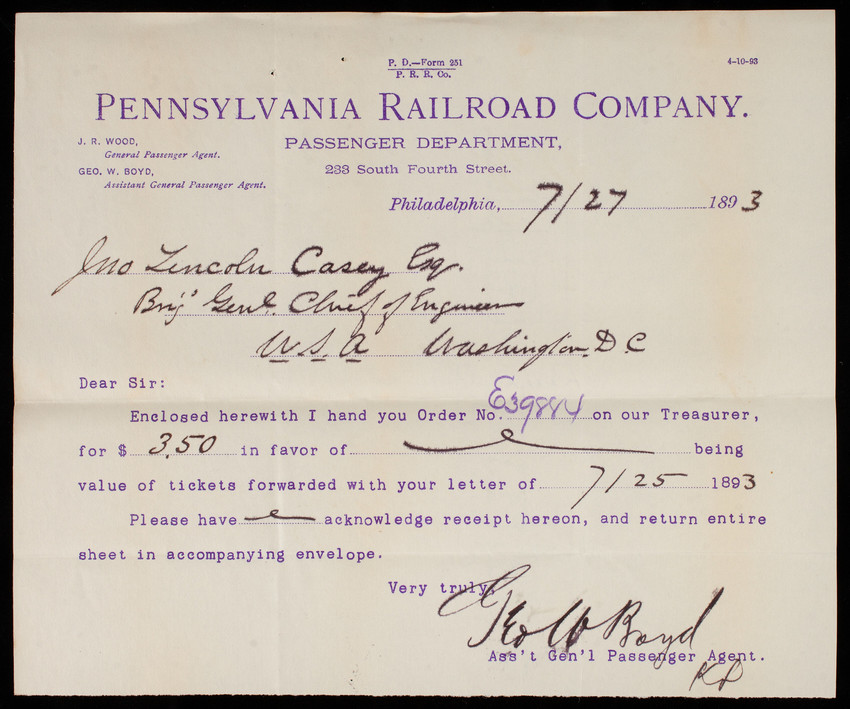 P. D.—Form 251
P. R. R. Co.
4-10-93
PENNSYLVANIA RAILROAD COMPANY.
J. R. WOOD,
General Passenger Agent.
GEO. W. BOYD,
Assistant General Passenger Agent.
PASSENGER DEPARTMENT,
233 South Fourth Street.
Philadelphia, 7/27 1893
Jno Lincoln Casey Esq.
Brig Genl. Chief of Engineers
U.S.A Washington. D. C
Dear Sir:
Enclosed herewith I hand you Order No. E39884 on our Treasurer,
for $ 3.50 in favor of being
value of tickets forwarded with your letter of 7/25 1893
Please have acknowledge receipt hereon, and return entire
sheet in accompanying envelope.
Very truly,
Geo W Boyd
Ass't Gen'l Passenger Agent.